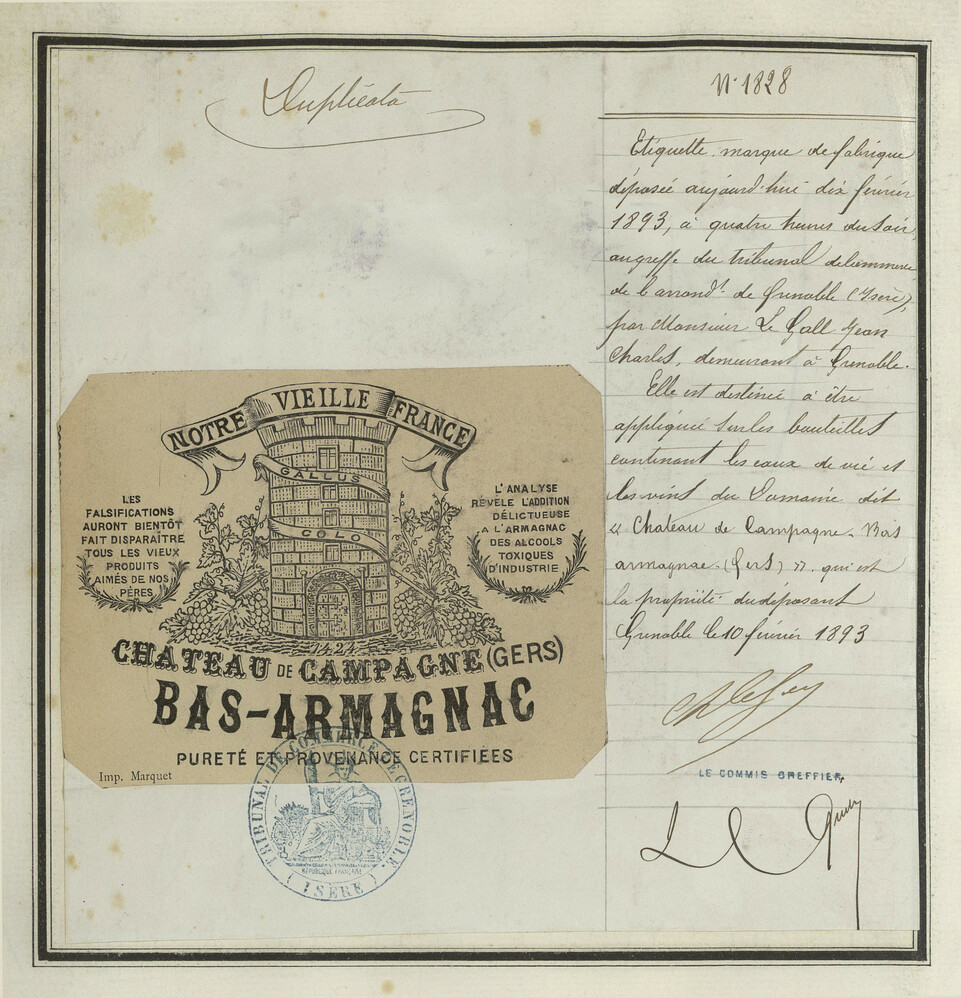 Duplicata
N° 1828
Etiquette, marque de fabrique
déposée aujourd'hui dix février
1893, à quatre heures du soir,
au greffe du tribunal de Commerce
de l'arrondt de Grenoble (Isère),
par Monsieur Le Gall Jean
Charles, demeurant à Grenoble.
Elle est destinée à être
appliquée sur les bouteilles
contenant les eaux de vie et
les vins du Domaine dit
« Chateau de Campagne - Bas
armagnac - (Gers) », qui est
la propriété du déposant
Grenoble le 10 février 1893
LE COMMIS GREFFIER,
NOTRE VIEILLE FRANCE
GALLUS
COLO
LES
FALSIFICATIONS
AURONT BIENTÔT
FAIT DISPARAÎTRE
TOUS LES VIEUX
PRODUITS
AIMÉS DE NOS
PÈRES
L'ANALYSE
RÉVÈLE L'ADDITION
DÉLICTUEUSE
A L'ARMAGNAC
DES ALCOOLS
TOXIQUES
D'INDUSTRIE
1424
CHATEAU DE CAMPAGNE (GERS)
BAS-ARMAGNAC
PURETÉ ET PROVENANCE CERTIFIÉES
Imp. Marquet
TRIBUNAL DE COMMERCE DE GRENOBLE.
RÉPUBLIQUE FRANÇAISE
(ISÈRE)